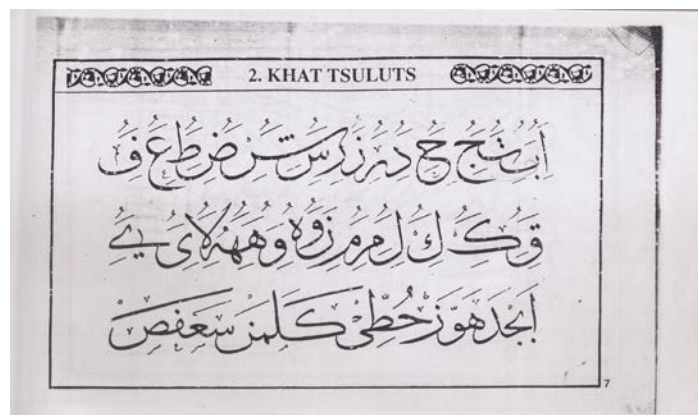 2. KHAT TSULUTS
اَبُتُ جُ حُ دُ رُ زُ رِسُ شُ ضُ طُ عُ فُ
قُ كُ لُ لُ مُ مُ زِوُهُ وُهُهُهُ لَا يُ يے
اَبْجَدْ هَوَّزْ حُطِّيْ كَلَمَنْ سَعَفَصْ
7